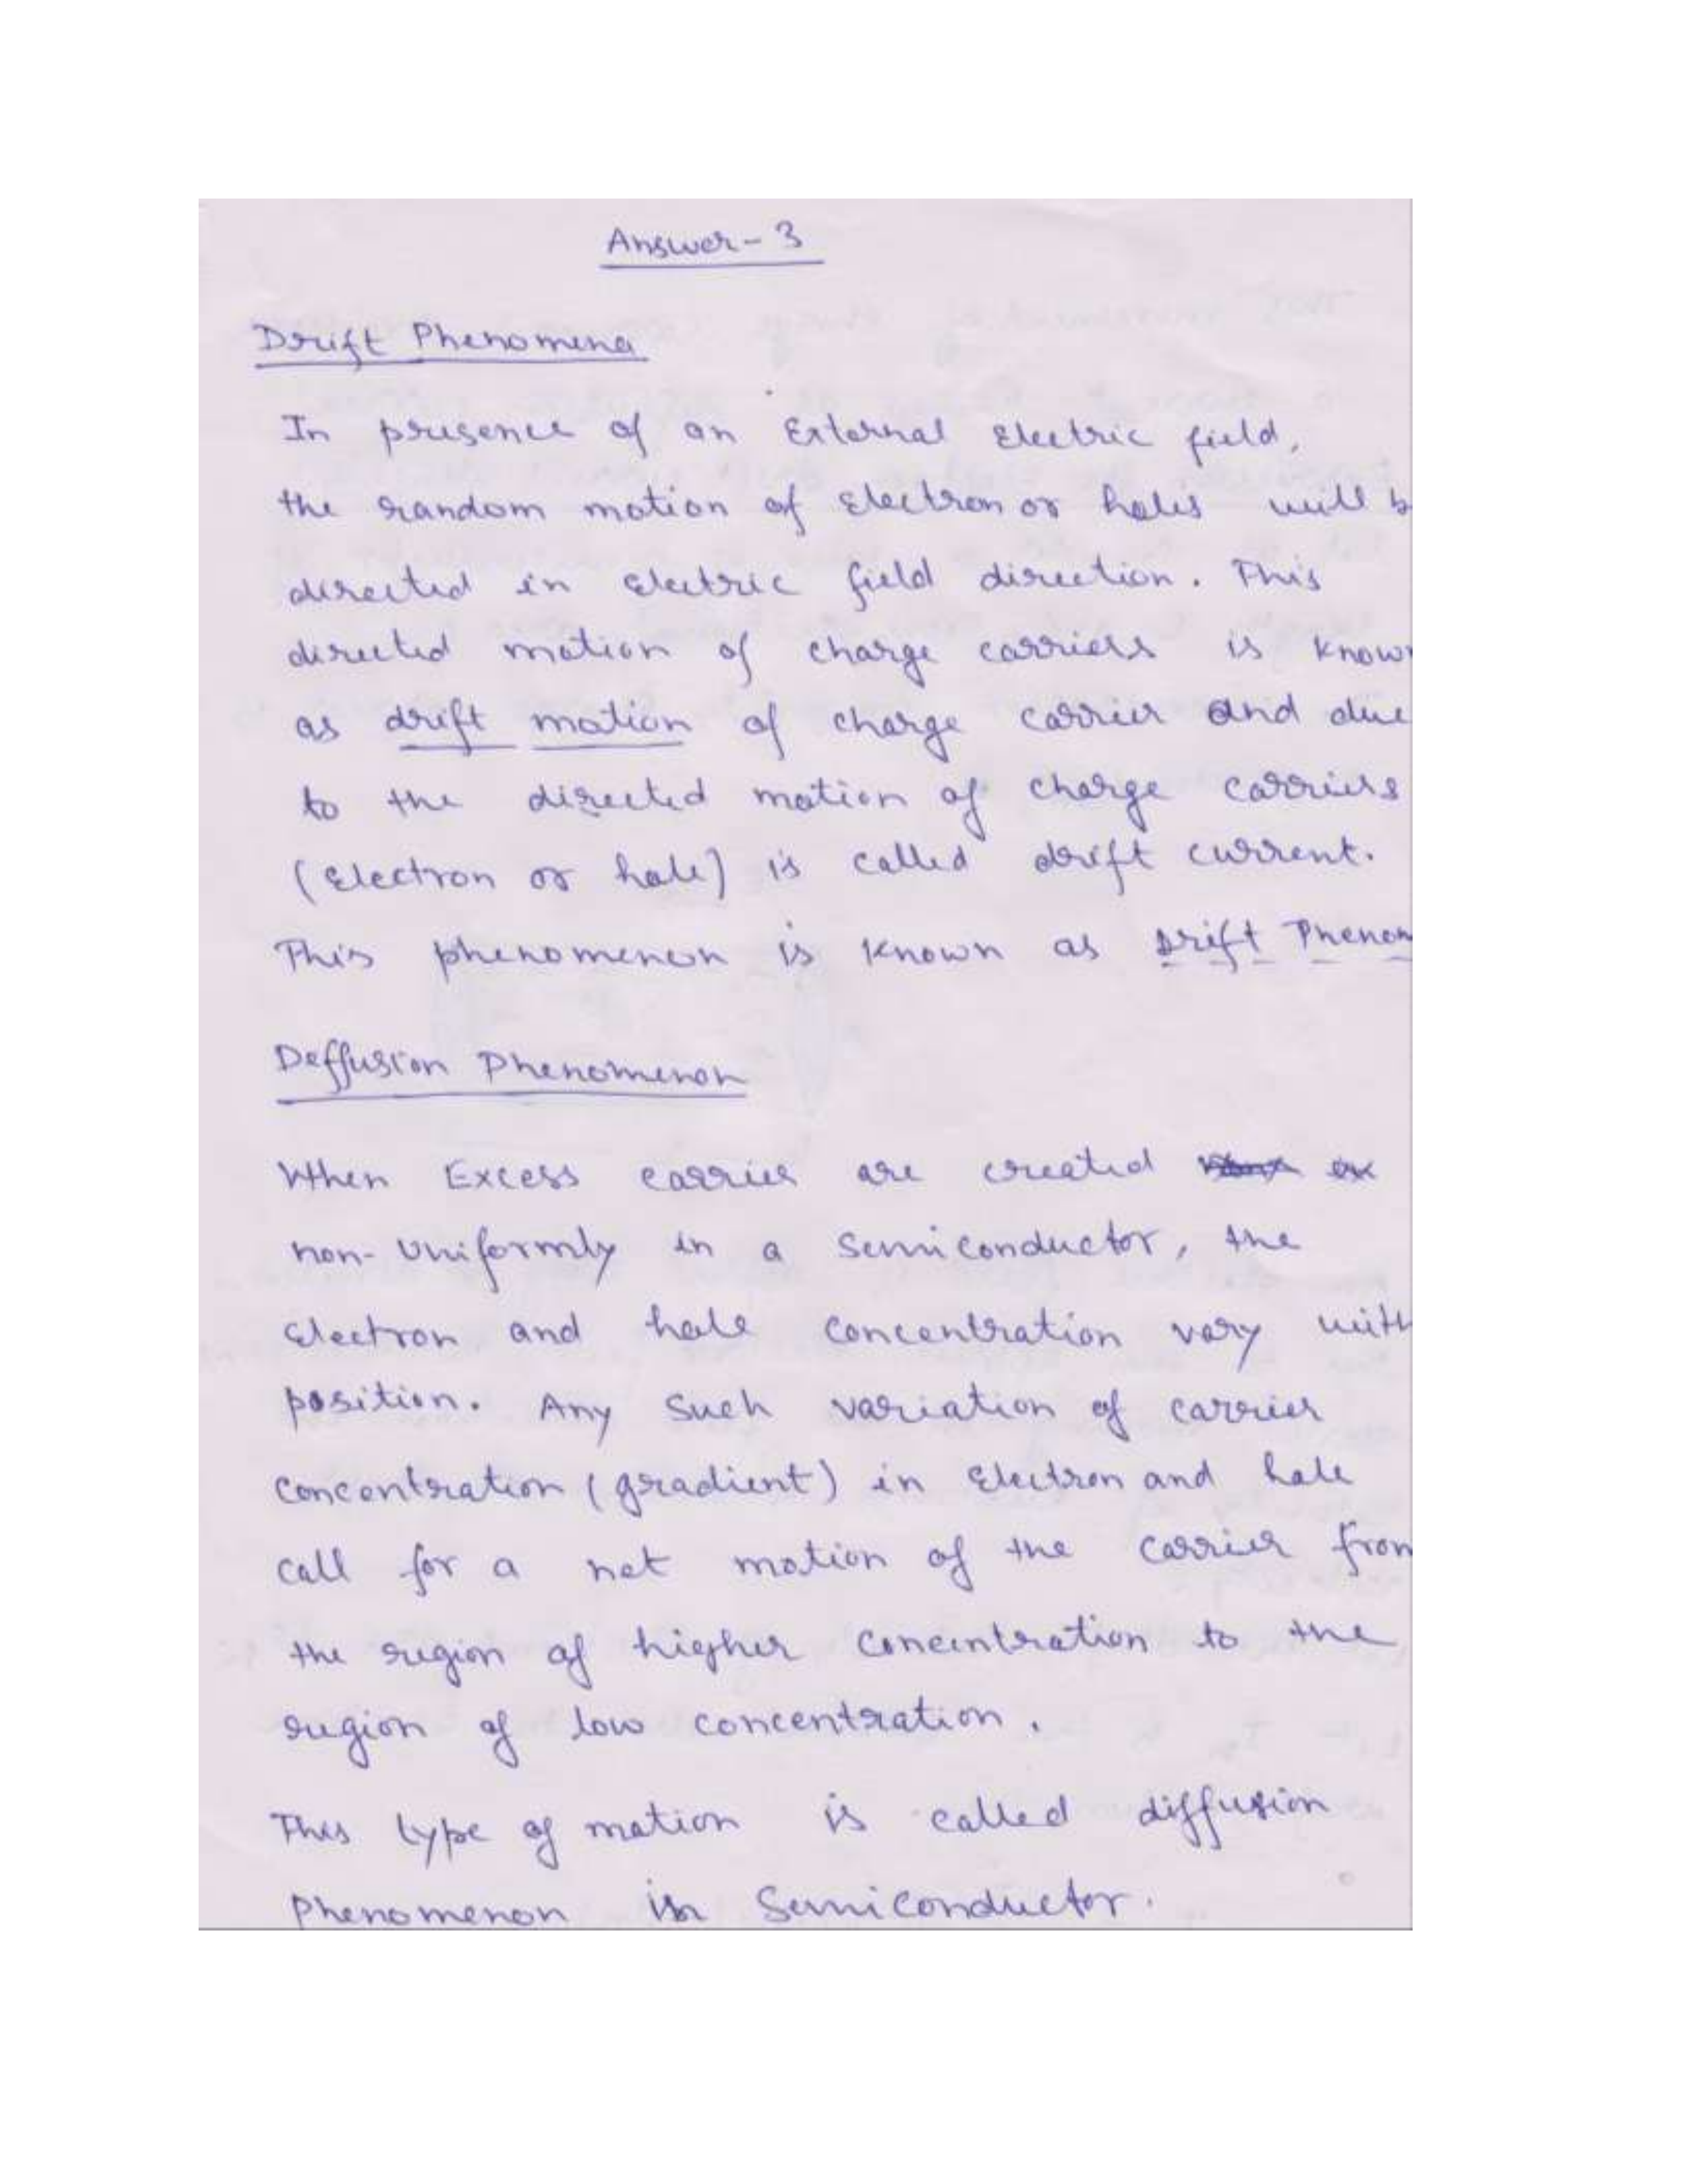 Answer - 3
Drift Phenomena
In presence of an External Electric field,
the random motion of Electron or holes will b
directed in Electric field direction. This
directed motion of charge carriers is know
as drift motion of charge carrier and due
to the directed motion of charge carriers
(Electron or hole) is called drift current.
This phenomenon is known as Drift Phenom
Deffusion Phenomenon
When Excess carrier are created
non-Uniformly in a Semiconductor, the
Electron and hole concentration vary with
position. Any Such variation of carrier
Concentration (gradient) in Electron and hole
call for a net motion of the carrier from
the region of higher Concentration to the
region of low concentration.
This type of motion is called diffusion
Phenomenon in Semiconductor.